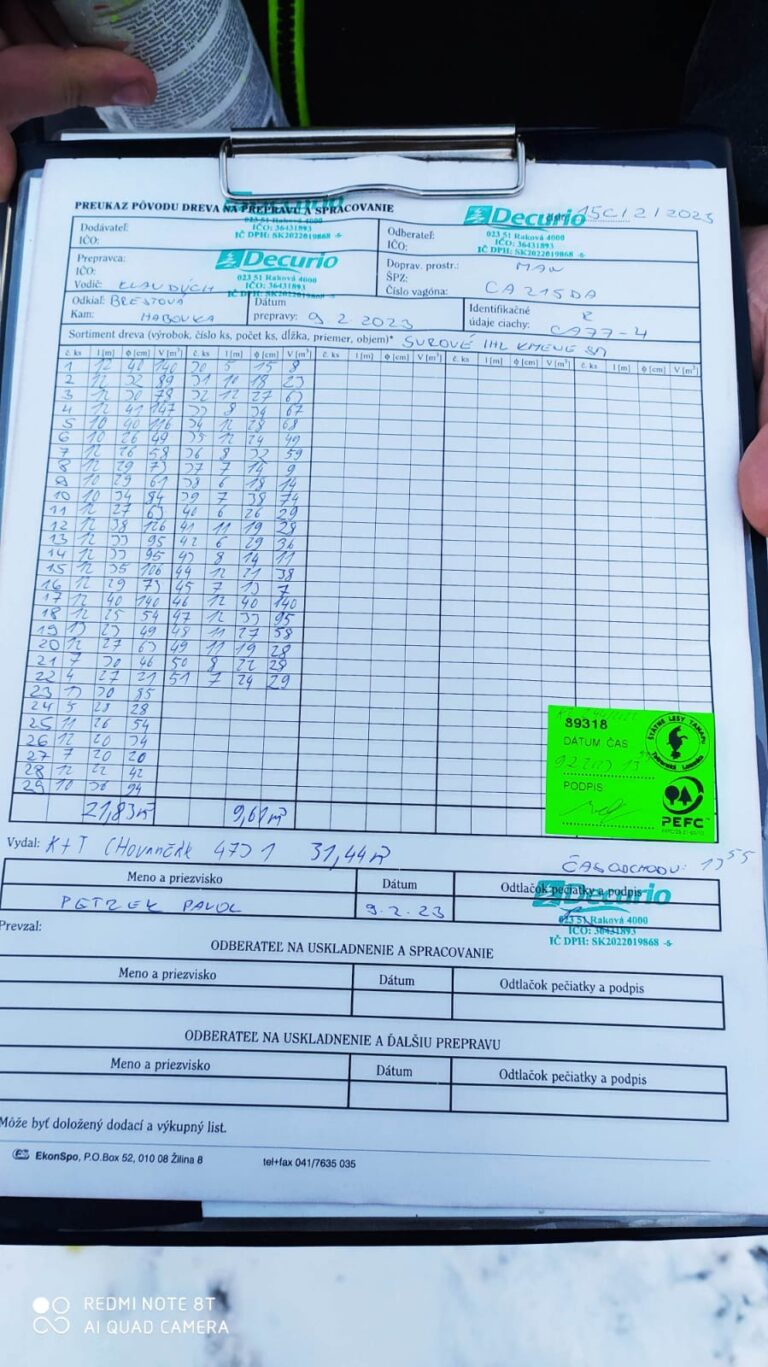 PREUKAZ PÔVODU DREVA NA PREPRAVU A SPRACOVANIE
Decurio
023 51 Raková 4000
IČO: 36431893
IČ DPH: SK2022019868 -6-
Decurio 15C/2/2023
023 51 Raková 4000
IČO: 36431893
IČ DPH: SK2022019868 -6-
Dodávateľ:
IČO:
Odberateľ:
IČO:
Prepravca:
IČO:
Vodič: KLAUDÍCH
Decurio
023 51 Raková 4000
IČO: 36431893
Doprav. prostr.: MAN
ŠPZ: CA 215DA
Číslo vagóna:
Odkiaľ: BRESTOVÁ
Kam: HABOVKA
Dátum
prepravy: 9 2 2023
Identifikačné
údaje ciachy: CA77-4
Sortiment dreva (výrobok, číslo ks, počet ks, dĺžka, priemer, objem)* SUROVÉ IHL KMENE SM
č. ks l [m] ϕ [cm] V [m³] č. ks l [m] ϕ [cm] V [m³] č. ks l [m] ϕ [cm] V [m³] č. ks l [m] ϕ [cm] V [m³] č. ks l [m] ϕ [cm] V [m³]
1 12 40 140 30 5 15 8
2 12 32 89 31 10 18 23
3 12 30 78 32 12 27 63
4 12 41 147 33 8 34 67
5 10 40 116 34 12 28 68
6 10 26 49 35 12 24 49
7 12 26 58 36 8 32 59
8 12 29 73 37 7 14 9
9 10 29 61 38 6 18 14
10 10 34 84 39 7 38 74
11 12 27 63 40 6 26 29
12 12 38 126 41 11 19 28
13 12 33 95 42 6 29 36
14 12 33 95 43 8 14 11
15 12 35 106 44 12 21 38
16 12 29 73 45 7 13 7
17 12 40 140 46 12 40 140
18 12 25 54 47 12 33 95
19 13 23 49 48 11 27 58
20 12 27 63 49 11 19 28
21 7 30 46 50 8 22 28
22 4 27 21 51 7 24 29
23 13 30 85
24 5 28 28
25 11 26 54
26 12 20 34
27 7 20 20
28 12 22 42
29 10 36 94
21,83m³ 9,61m³
89318
DÁTUM ČAS
PODPIS
ŠTÁTNE LESY TANAPU
Tatranská Lomnica
PEFC
Vydal: K+T CHOVANČÁK 473 1 31,44m³
ČAS ODCHODU: 13 55
Meno a priezvisko Dátum Odtlačok pečiatky a podpis
PETREK PAVOL 9.2.23
Decurio
023 51 Raková 4000
IČO: 36431893
IČ DPH: SK2022019868 -6-
Prevzal:
ODBERATEĽ NA USKLADNENIE A SPRACOVANIE
Meno a priezvisko Dátum Odtlačok pečiatky a podpis
ODBERATEĽ NA USKLADNENIE A ĎALŠIU PREPRAVU
Meno a priezvisko Dátum Odtlačok pečiatky a podpis
Môže byť doložený dodací a výkupný list.
EkonSpo, P.O.Box 52, 010 08 Žilina 8 tel+fax 041/7635 035
REDMI NOTE 8T
AI QUAD CAMERA